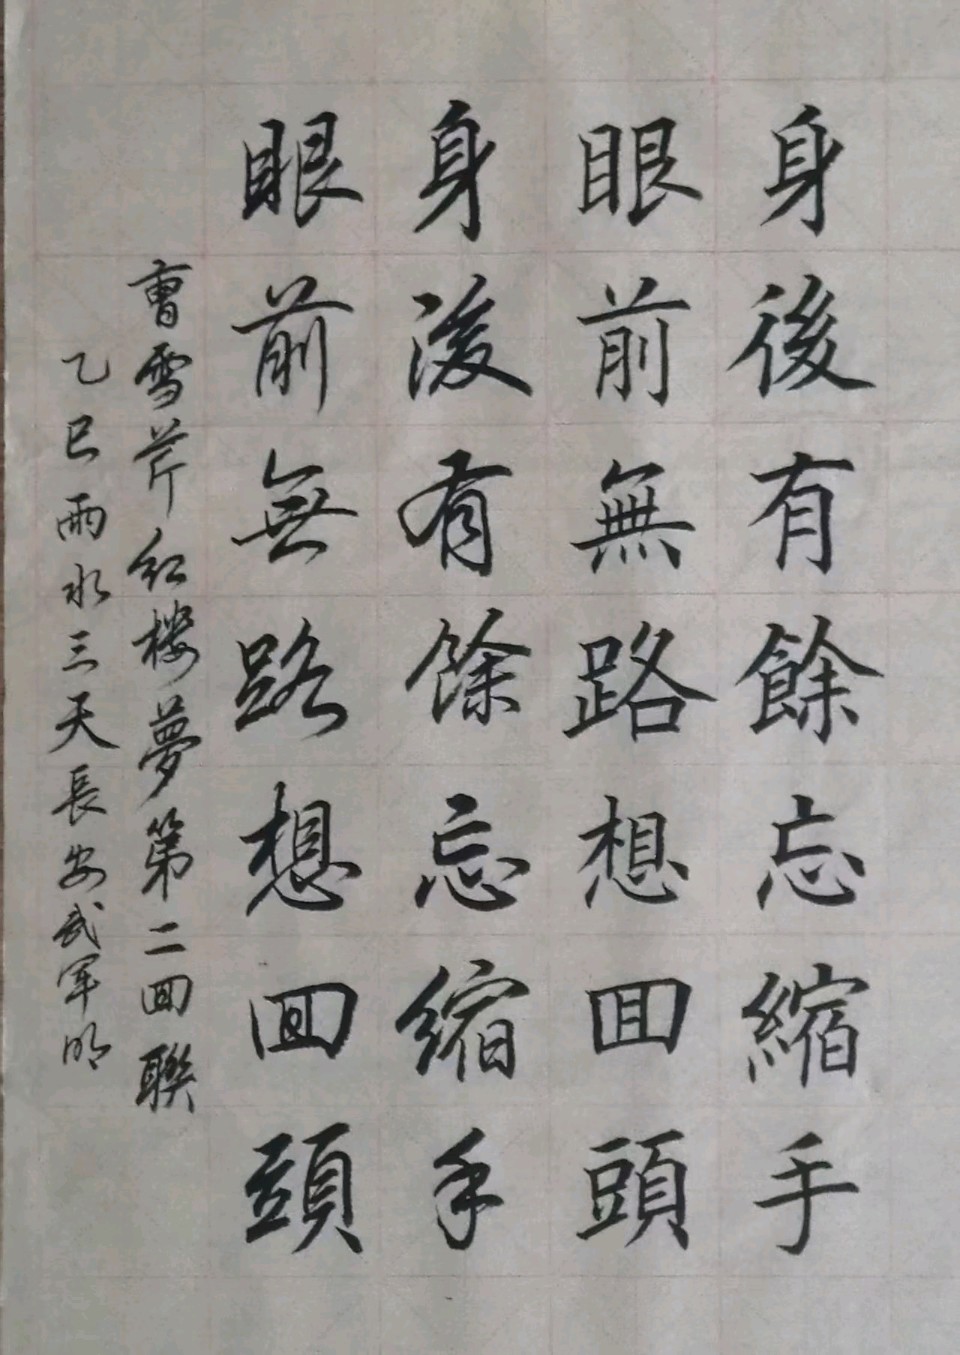 身後有餘忘縮手
眼前無路想回頭
身後有餘忘縮手
眼前無路想回頭
曹雪芹红楼夢第二回聯
乙巳雨水三天長安武軍明